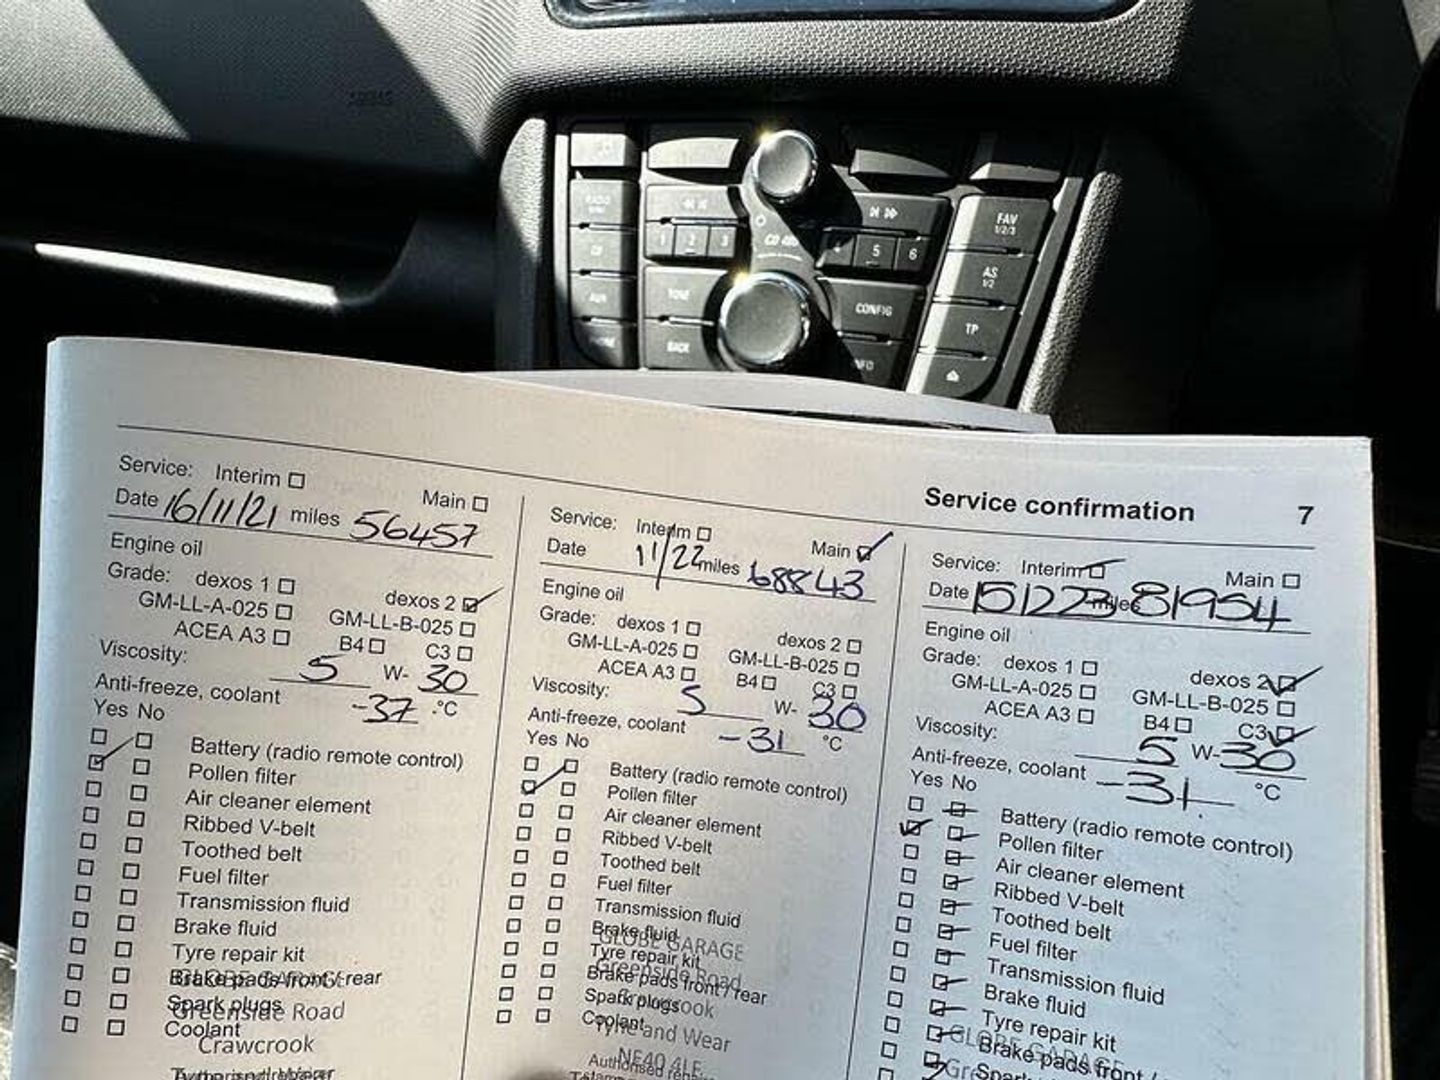 FAV
1/2/3
1 2 3
5 6
AS
1/2
TONE
CONFIG
TP
BACK
CD
AUX
Service confirmation 7
Service: Interim Main
Date 16/11/21 miles 56457
Engine oil
Grade: dexos 1 dexos 2
GM-LL-A-025 GM-LL-B-025
ACEA A3 B4 C3
Viscosity: 5 W-30
Anti-freeze, coolant -37 °C
Yes No
Battery (radio remote control)
Pollen filter
Air cleaner element
Ribbed V-belt
Toothed belt
Fuel filter
Transmission fluid
Brake fluid
Tyre repair kit
Brake pads front / rear
Spark plugs
Coolant
GLOBE GARAGE
Greenside Road
Crawcrook
Service: Interim Main
Date 11/22 miles 68843
Engine oil
Grade: dexos 1 dexos 2
GM-LL-A-025 GM-LL-B-025
ACEA A3 B4 C3
Viscosity: 5 W-30
Anti-freeze, coolant -31 °C
Yes No
Battery (radio remote control)
Pollen filter
Air cleaner element
Ribbed V-belt
Toothed belt
Fuel filter
Transmission fluid
Brake fluid
Tyre repair kit
Brake pads front / rear
Spark plugs
Coolant
GLOBE GARAGE
Greenside Road
Crawcrook
Tyne and Wear
NE40 4LE
Service: Interim Main
Date miles 81954
Engine oil
Grade: dexos 1 dexos 2
GM-LL-A-025 GM-LL-B-025
ACEA A3 B4 C3
Viscosity: 5 W-30
Anti-freeze, coolant -31 °C
Yes No
Battery (radio remote control)
Pollen filter
Air cleaner element
Ribbed V-belt
Toothed belt
Fuel filter
Transmission fluid
Brake fluid
Tyre repair kit
Brake pads front /
GLOBE GARAGE